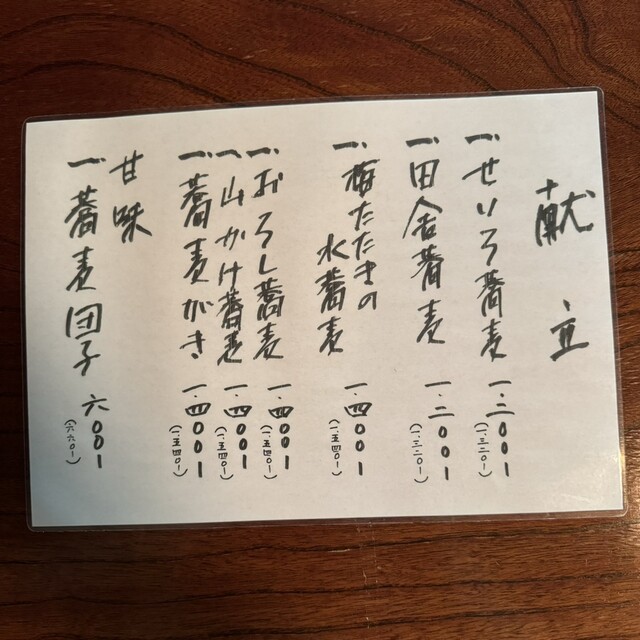 献立
一、せいろ蕎麦 一、二〇〇ー
(一、三二〇ー)
一、田舎蕎麦 一、二〇〇ー
(一、三二〇ー)
一、梅たたきの
水蕎麦 一、四〇〇ー
(一、五四〇ー)
一、おろし蕎麦 一、四〇〇ー
(一、五四〇ー)
一、山かけ蕎麦 一、四〇〇ー
(一、五四〇ー)
一、蕎麦がき 一、四〇〇ー
(一、五四〇ー)
甘味
一、蕎麦団子 六〇〇ー
(六六〇ー)